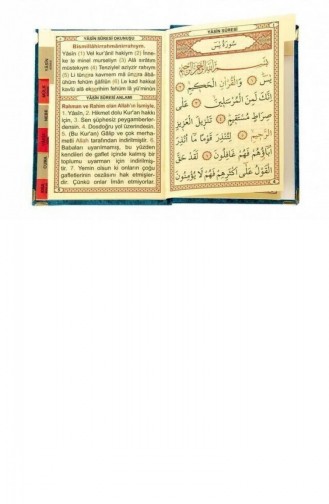 YÂSÎN SÛRESİ OKUNUŞU
Bismillâhirrahmânirrahıym.
Yâsîn (1) Vel kur'ânil hakiym (2) İnne-
ke le minel murseliyn (3) Alâ sırâtım
müstekıym (4) Tenziylel aziyzir rahıym
(5) Li tünzira kavmem mâ ünzira âbâ-
ühüm fehüm ğâfilûn (6) Le kad hakkal
kavlü alâ ekserihim fehüm lâ yü'minûn
YÂSÎN SÛRESİ ANLAMI
Rahman ve Rahim olan Allah'ın ismiyle,
1. Yâsîn, 2. Hikmet dolu Kur'an hakkı
için, 3. Sen şüphesiz peygamberlerden-
sin. 4. Dosdoğru yol üzerindesin.
5. (Bu Kur'an) Gâlip ve çok merha-
metli Allah tarafından indirilmiştir. 6.
Babaları uyarılmamış, bu yüzden
kendileri de gaflet içinde kalmış bir
toplumu uyarman için indirilmiş-
tir. 7. Yemin olsun ki onların çoğu
gafletlerinin cezasını hak etmişler-
dir. Çünkü onlar îman etmiyorlar.
YÂSÎN SÛRESİ
سُورَةُ يٰسٓ
بِسْمِ اللّٰهِ الرَّحْمٰنِ الرَّحِيمِ
يٰسٓ ﴿١﴾ وَالْقُرْاٰنِ الْحَكِيمِ ﴿٢﴾
اِنَّكَ لَمِنَ الْمُرْسَلِينَ ﴿٣﴾ عَلٰى
صِرَاطٍ مُسْتَقِيمٍ ﴿٤﴾ تَنْزِيلَ الْعَزِيزِ
الرَّحِيمِ ﴿٥﴾ لِتُنْذِرَ قَوْمًا مَٓا اُنْذِرَ
اٰبَٓاؤُهُمْ فَهُمْ غَافِلُونَ ﴿٦﴾ لَقَدْ حَقَّ
الْقَوْلُ عَلٰٓى اَكْثَرِهِمْ فَهُمْ لَا يُؤْمِنُونَ